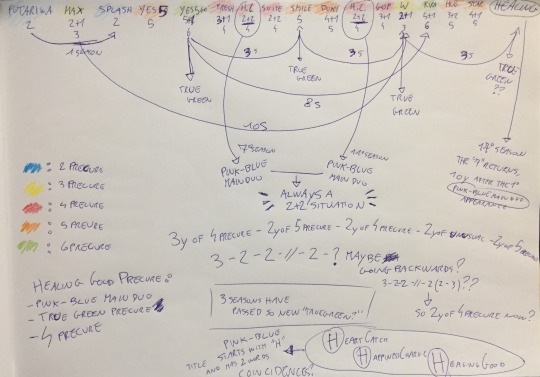 FUTARIWA MAX SPLASH YES5 YES5GO FRESH H.C SUITE SMILE DOKI H.C GOP W KIRA HUG STAR HEALING
2 2+1 2 5 5+1 3+1 2+2 3+1 5 4+1 2+2 3+1 2+1 5+1 3+2 4+1
3 6 4 4 4 5 4 4 3 6 5 5
1 SEASON
3s 3s 3s
TRUE GREEN
TRUE GREEN
TRUE GREEN
TRUE GREEN ??
8s
10s
7° SEASON
11° SEASON
PINK-BLUE MAIN DUO
PINK-BLUE MAIN DUO
ALWAYS A 2+2 SITUATION
17° SEASON
THE "H" RETURNS,
10y AFTER THE 1°
PINK-BLUE MAIN DUO
APPEARANCE
: 2 PRECURE
: 3 PRECURE
: 4 PRECURE
: 5 PRECURE
: 6 PRECURE
3y OF 4 PRECURE - 2y OF 5 PRECURE - 2y OF 4 PRECURE - 2y OF UNUSUAL - 2y OF 5 PRECURE
3 - 2 - 2 - // - 2 - ? MAYBE
GOING BACKWARDS?
3-2-2-//-2(2-3)??
SO 2y OF 4 PRECURE NOW?
HEALING GOOD PRECURE:
- PINK-BLUE MAIN DUO
- TRUE GREEN PRECURE
- 4 PRECURE
3 SEASONS HAVE
PASSED SO NEW "TRUE GREEN?"
PINK-BLUE
TITLE STARTS WITH "H"
AND HAS 2 WORDS
COINCIDENCES?
HEARTCATCH
HAPPINESSCHARGE
HEALINGGOOD